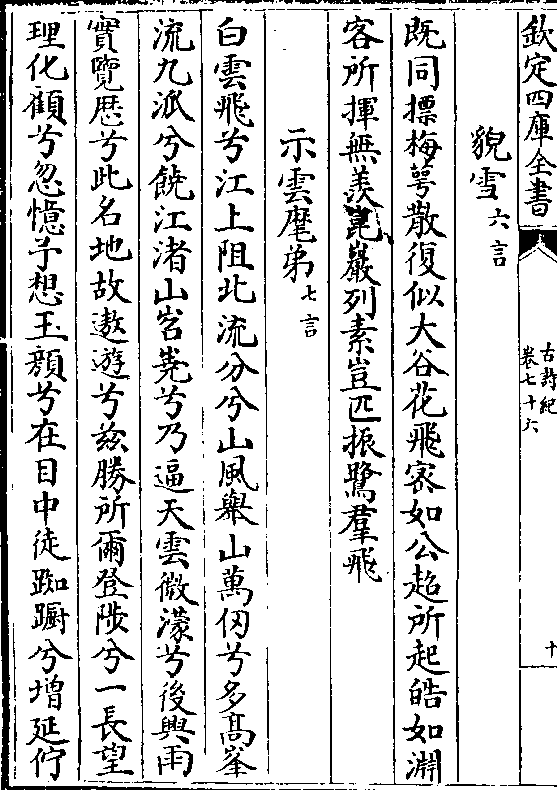 欽定四庫全書
古詩紀
卷七十六
十
貌雪六言
既同摽梅萼散復似大谷花飛宻如公超所起皓如淵
客所揮無羡崑巖列素豈匹振鷺羣飛
示雲麾弟七言
白雲飛兮江上阻北流分兮山風舉山萬仞兮多髙峯
流九派兮饒江渚山岧嶤兮乃逼天雲微濛兮後興雨
實覽歴兮此名地故遨遊兮兹勝所爾登陟兮一長望
理化顧兮忽憶予想玉顔兮在目中徒踟蹰兮增延佇